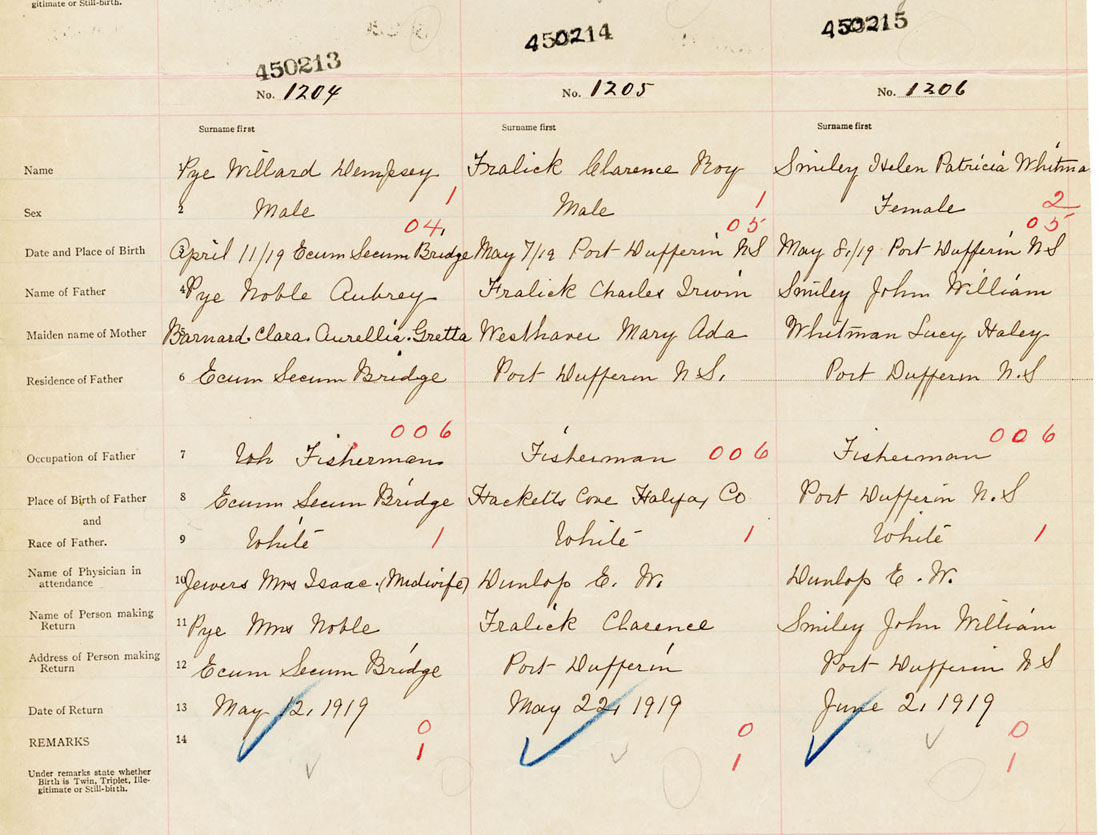 gitimate or Still-birth.
450213 450214 450215
No. 1204 No. 1205 No. 1206
Surname first Surname first Surname first
Name 1 Pye Willard Dempsey Fralick Clarence Roy Smiley Helen Patricia Whitma
1 1 2
Sex 2 Male Male Female
04. 05 05
Date and Place of Birth 3 April 11/19 Ecum Secum Bridge May 7/19 Port Dufferin NS May 8/19 Port Dufferin NS
Name of Father 4 Pye Noble Aubrey Fralick Charles Irwin Smiley John William
Maiden name of Mother 5 Barnard. Clara. Aurellia. Gretta Westhaver Mary Ada Whitman Lucy Haley
Residence of Father 6 Ecum Secum Bridge Port Dufferin N.S. Port Dufferin N.S
006 006
Occupation of Father 7 Fisherman Fisherman 006 Fisherman
Place of Birth of Father 8 Ecum Secum Bridge Hacketts Cove Halifax Co Port Dufferin N.S
and
Race of Father. 9 White 1 White 1 White 1
Name of Physician in
attendance 10 Jewers Mrs Isaac. (Midwife) Dunlop E. W. Dunlop E. W.
Name of Person making
Return 11 Pye Mrs Noble Fralick Clarence Smiley John William
Address of Person making
Return 12 Ecum Secum Bridge Port Dufferin Port Dufferin N S
Date of Return 13 May 12, 1919 May 22, 1919 June 2, 1919
0 0 0
REMARKS 14
1 1 1
Under remarks state whether
Birth is Twin, Triplet, Ille-
gitimate or Still-birth.